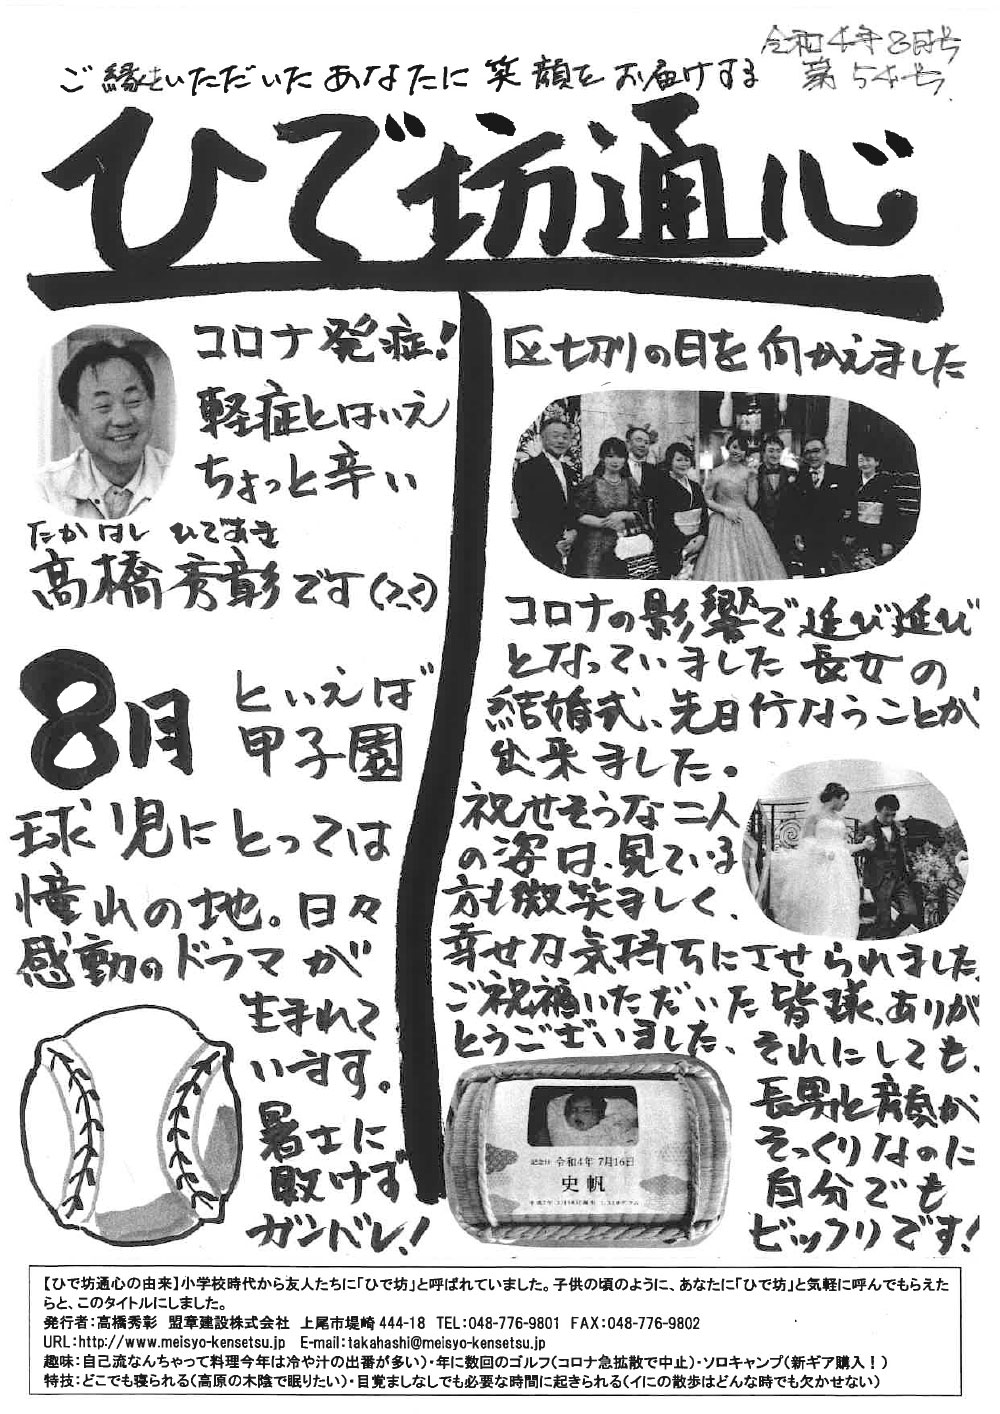 令和4年8月号
第54号
ご縁をいただいたあなたに笑顔をお届けする
ひで坊通心
コロナ発症！
軽症とはいえ
ちょっと辛い
たかはし ひであき
高橋秀彰です(>_<)
8月
といえば
甲子園
球児にとっては
憧れの地。日々
感動のドラマが
生まれて
います。
暑さに
敗けず
ガンバレ！
区切りの日を向かえました
コロナの影響で延び延び
となっていました長女の
結婚式、先日行なうことが
出来ました。
祝せそうな二人
の姿は、見ている
方も微笑ましく、
幸せな気持ちにさせられました。
ご祝福いただいた皆様、ありが
とうございました、
それにしても、
長男と顔が
そっくりなのに
自分でも
ビックリです！
記念日 令和4年 7月16日
史帆
【ひで坊通心の由来】小学校時代から友人たちに「ひで坊」と呼ばれていました。子供の頃のように、あなたに「ひで坊」と気軽に呼んでもらえた
らと、このタイトルにしました。
発行者：高橋秀彰 盟章建設株式会社 上尾市堤崎444-18 TEL：048-776-9801 FAX：048-776-9802
URL：http://www.meisyo-kensetsu.jp E-mail：takahashi@meisyo-kensetsu.jp
趣味：自己流なんちゃって料理今年は冷や汁の出番が多い）・年に数回のゴルフ（コロナ急拡散で中止）・ソロキャンプ（新ギア購入！）
特技：どこでも寝られる（高原の木陰で眠りたい）・目覚ましなしでも必要な時間に起きられる（イにの散歩はどんな時でも欠かせない）